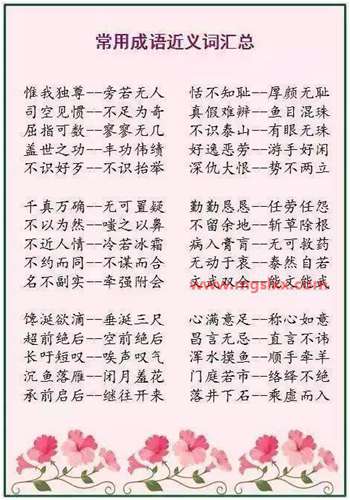 常用成语近义词汇总
惟我独尊--旁若无人 恬不知耻--厚颜无耻
司空见惯--不足为奇 真假难辨--鱼目混珠
屈指可数--寥寥无几 不识泰山--有眼无珠
盖世之功--丰功伟绩 好逸恶劳--游手好闲
不识好歹--不识抬举 深仇大恨--势不两立
千真万确--无可置疑 勤勤恳恳--任劳任怨
不以为然--嗤之以鼻 不留余地--斩草除根
不近人情--冷若冰霜 病入膏肓--无可救药
不约而同--不谋而合 无动于衷--泰然自若
名不副实--牵强附会 文武双全--能文能武
www.mgslxx.com
馋涎欲滴--垂涎三尺 心满意足--称心如意
超前绝后--空前绝后 昌言无忌--直言不讳
长吁短叹--唉声叹气 浑水摸鱼--顺手牵羊
沉鱼落雁--闭月羞花 门庭若市--络绎不绝
承前启后--继往开来 落井下石--乘虚而入